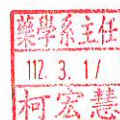 藥學系主任
112. 3. 1/
柯宏慧